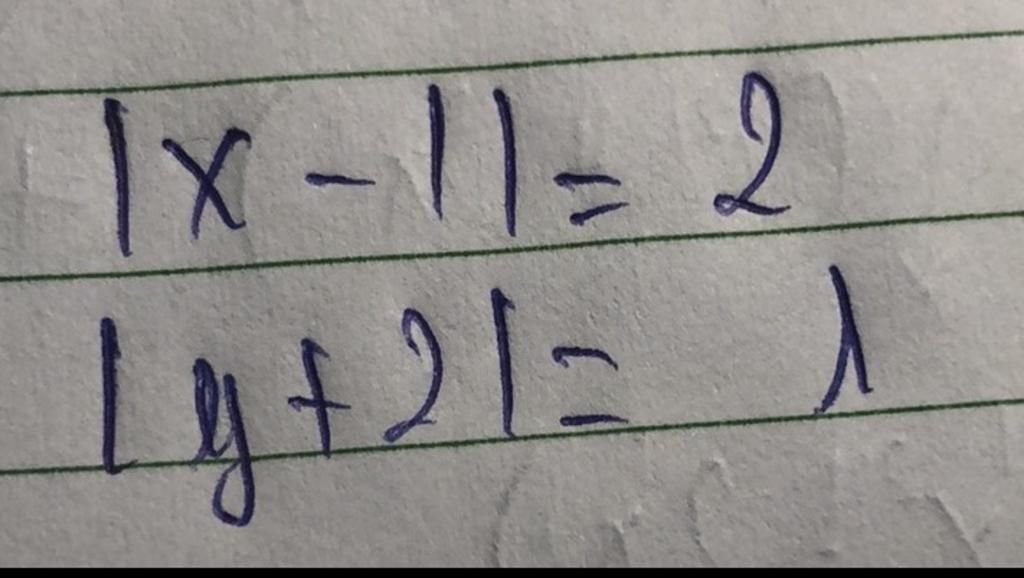 |x-1|= 2
|y+2|= λ